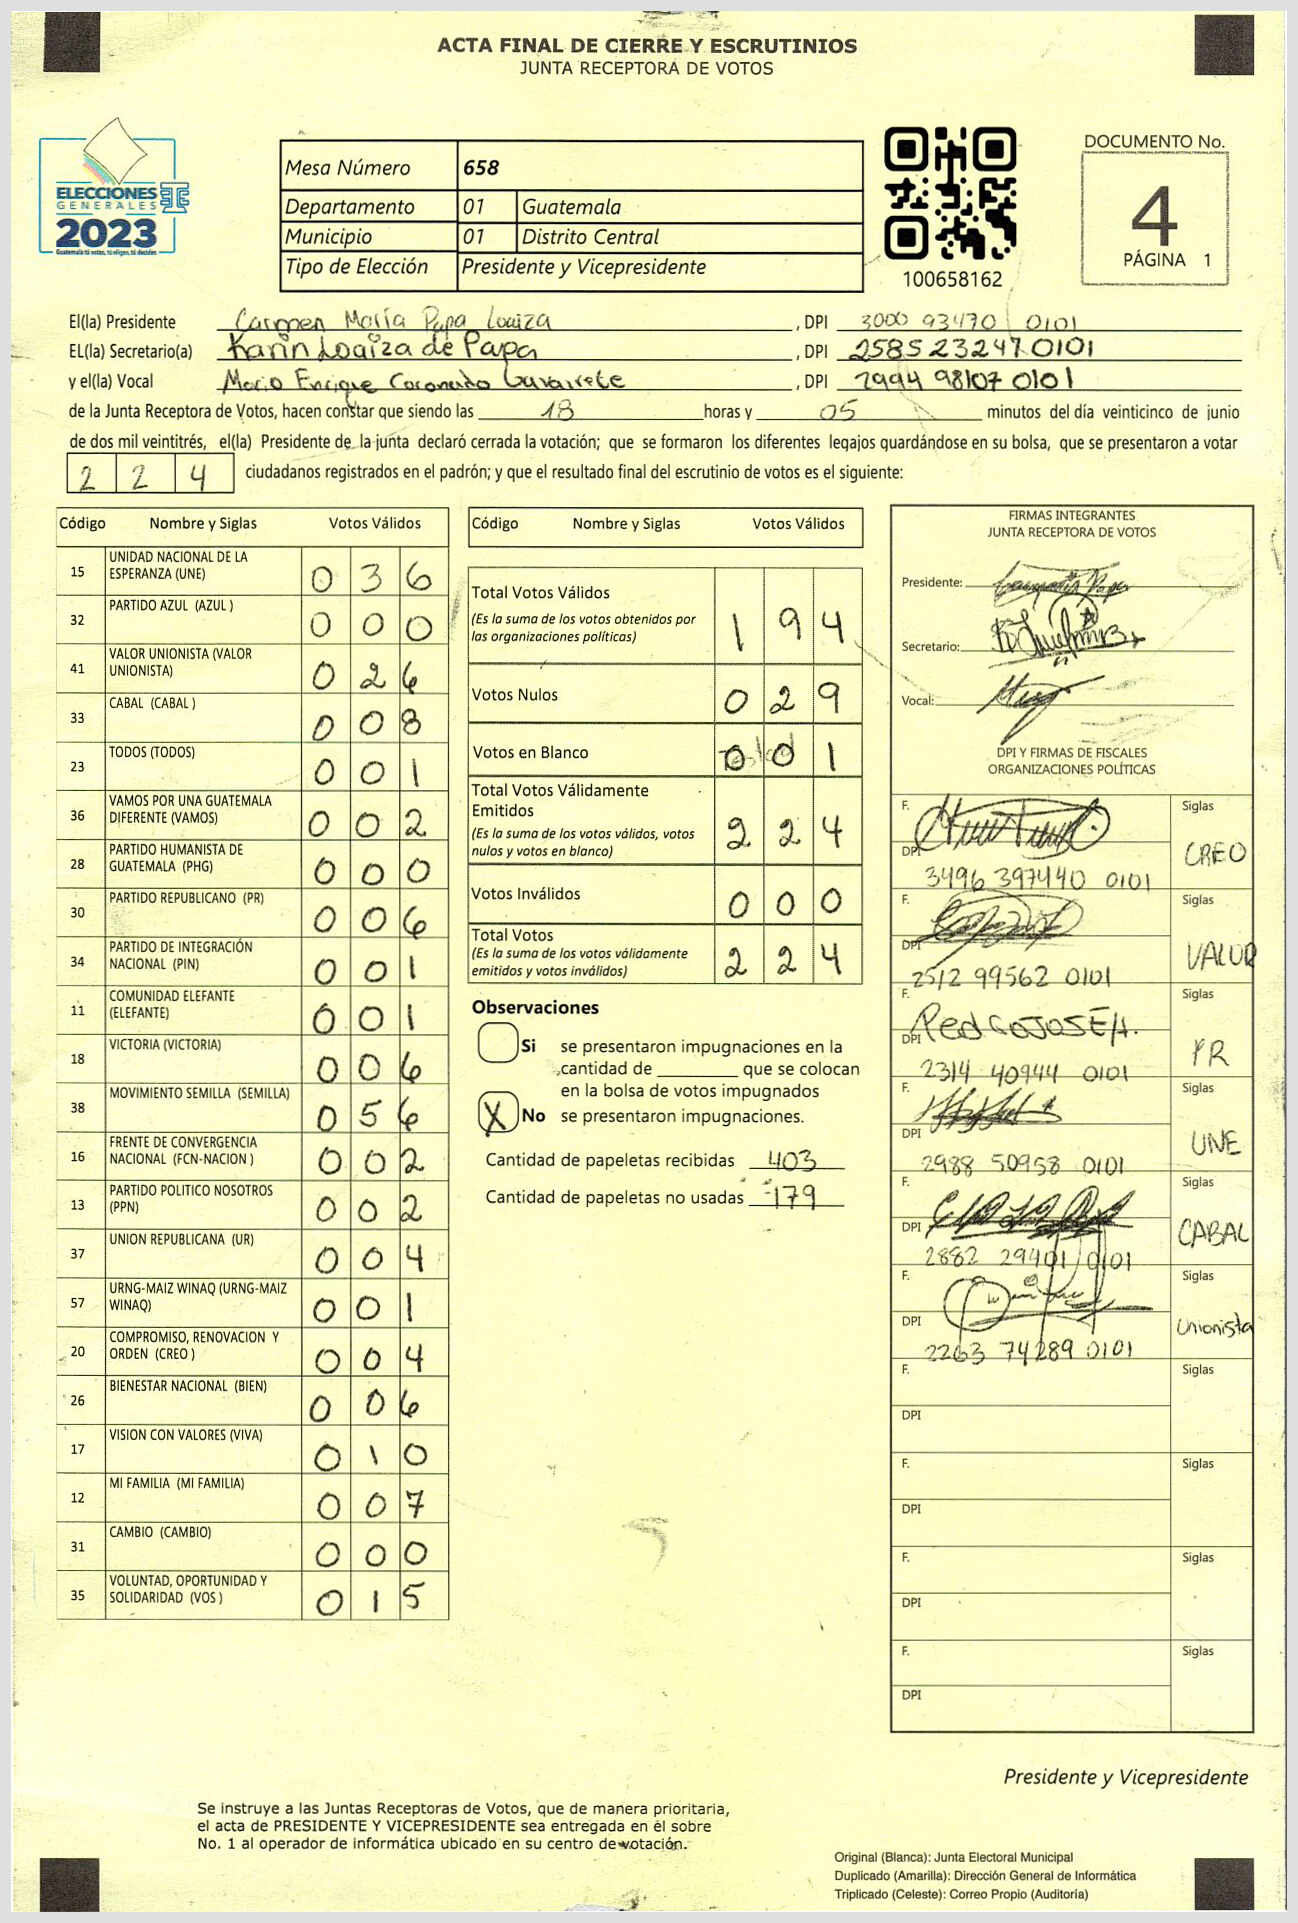 ACTA FINAL DE CIERRE Y ESCRUTINIOS
JUNTA RECEPTORA DE VOTOS
ELECCIONES
GENERALES
2023
Guatemala tú votas, tú eliges, tú decides
Mesa Número 658
Departamento 01 Guatemala
Municipio 01 Distrito Central
Tipo de Elección Presidente y Vicepresidente
100658162
DOCUMENTO No.
4
PÁGINA 1
El(la) Presidente Carmen María Papa Loaiza, DPI 3000 93470 0101
EL(la) Secretario(a) Karin Loaiza de Papa, DPI 2585 23247 0101
y el(la) Vocal Mario Enrique Coronado, DPI 2994 98107 0101
de la Junta Receptora de Votos, hacen constar que siendo las 18 horas y 05 minutos del día veinticinco de junio
de dos mil veintitrés, el(la) Presidente de la junta declaró cerrada la votación; que se formaron los diferentes legajos quardándose en su bolsa, que se presentaron a votar
2 2 4 ciudadanos registrados en el padrón; y que el resultado final del escrutinio de votos es el siguiente:
Código Nombre y Siglas Votos Válidos
15 UNIDAD NACIONAL DE LA ESPERANZA (UNE) 0 3 6
32 PARTIDO AZUL (AZUL ) 0 0 0
41 VALOR UNIONISTA (VALOR UNIONISTA) 0 2 6
33 CABAL (CABAL ) 0 0 8
23 TODOS (TODOS) 0 0 1
36 VAMOS POR UNA GUATEMALA DIFERENTE (VAMOS) 0 0 2
28 PARTIDO HUMANISTA DE GUATEMALA (PHG) 0 0 0
30 PARTIDO REPUBLICANO (PR) 0 0 6
34 PARTIDO DE INTEGRACIÓN NACIONAL (PIN) 0 0 1
11 COMUNIDAD ELEFANTE (ELEFANTE) 0 0 1
18 VICTORIA (VICTORIA) 0 0 6
38 MOVIMIENTO SEMILLA (SEMILLA) 0 5 6
16 FRENTE DE CONVERGENCIA NACIONAL (FCN-NACION ) 0 0 2
13 PARTIDO POLITICO NOSOTROS (PPN) 0 0 2
37 UNION REPUBLICANA (UR) 0 0 4
57 URNG-MAIZ WINAQ (URNG-MAIZ WINAQ) 0 0 1
20 COMPROMISO, RENOVACION Y ORDEN (CREO ) 0 0 4
26 BIENESTAR NACIONAL (BIEN) 0 0 6
17 VISION CON VALORES (VIVA) 0 1 0
12 MI FAMILIA (MI FAMILIA) 0 0 7
31 CAMBIO (CAMBIO) 0 0 0
35 VOLUNTAD, OPORTUNIDAD Y SOLIDARIDAD (VOS ) 0 1 5
Código Nombre y Siglas Votos Válidos
Total Votos Válidos 1 9 4
(Es la suma de los votos obtenidos por
las organizaciones políticas)
Votos Nulos 0 2 9
Votos en Blanco 0 0 1
Total Votos Válidamente
Emitidos 2 2 4
(Es la suma de los votos válidos, votos
nulos y votos en blanco)
Votos Inválidos 0 0 0
Total Votos 2 2 4
(Es la suma de los votos válidamente
emitidos y votos inválidos)
Observaciones
Si se presentaron impugnaciones en la
cantidad de ________ que se colocan
en la bolsa de votos impugnados
X No se presentaron impugnaciones.
Cantidad de papeletas recibidas 403
Cantidad de papeletas no usadas 179
FIRMAS INTEGRANTES
JUNTA RECEPTORA DE VOTOS
Presidente:
Secretario:
Vocal:
DPI Y FIRMAS DE FISCALES
ORGANIZACIONES POLÍTICAS
F. Siglas
DPI 3496 397440 0101 CREO
F. Siglas
DPI 2512 99562 0101 VALOR
F. Siglas
DPI 2314 40944 0101 PR
F. Siglas
DPI 2988 50958 0101 UNE
F. Siglas
DPI 2882 29401 0101 CABAL
F. Siglas
DPI 2263 74289 0101 Unionista
F. Siglas
DPI
F. Siglas
DPI
F. Siglas
DPI
F. Siglas
DPI
Presidente y Vicepresidente
Se instruye a las Juntas Receptoras de Votos, que de manera prioritaria,
el acta de PRESIDENTE Y VICEPRESIDENTE sea entregada en el sobre
No. 1 al operador de informática ubicado en su centro de votación.
Original (Blanca): Junta Electoral Municipal
Duplicado (Amarilla): Dirección General de Informática
Triplicado (Celeste): Correo Propio (Auditoría)